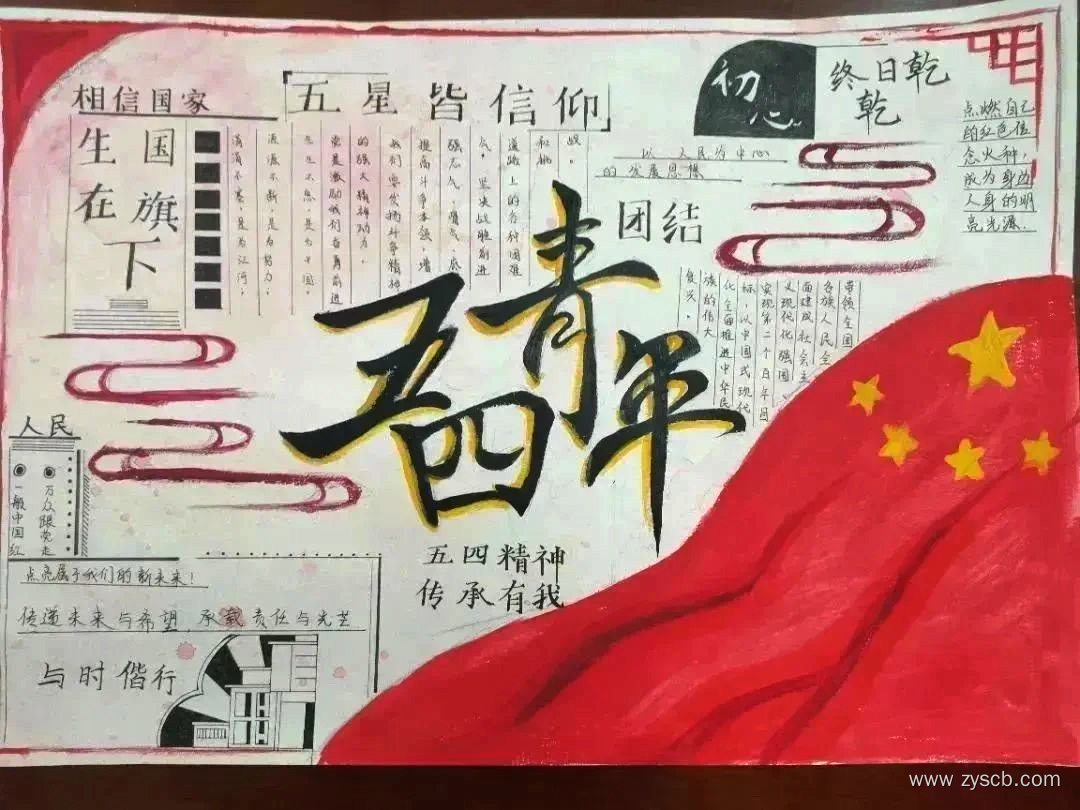 相信国家
五星皆信仰
初心
终日乾
乾
点燃自己
的红色信
念火种，
成为身边
人身的明
亮光源.
生在国旗下
涓滴不塞，是为江河；
源源不断，是为努力；
生生不息，是为中国。
党是激励我们奋勇前进
的强大精神动力。
我们要发扬斗争精神
提高斗争本领，增
强志气、骨气、底
气，坚决战胜前进
道路上的各种困难
和挑
战。
以 人民为中心
的发展思想
团结
带领全国
各族人民全
面建成社会主
义现代化强国
实现第二个百年目
标，以中国式现代
化全面推进中华民
族的伟大
复兴。
五四青年
人民
万众跟党走
一般中国红
五四精神
传承有我
点亮属于我们的新未来！
传递未来与希望 承载责任与光芒
与时偕行
www.zyscb.com